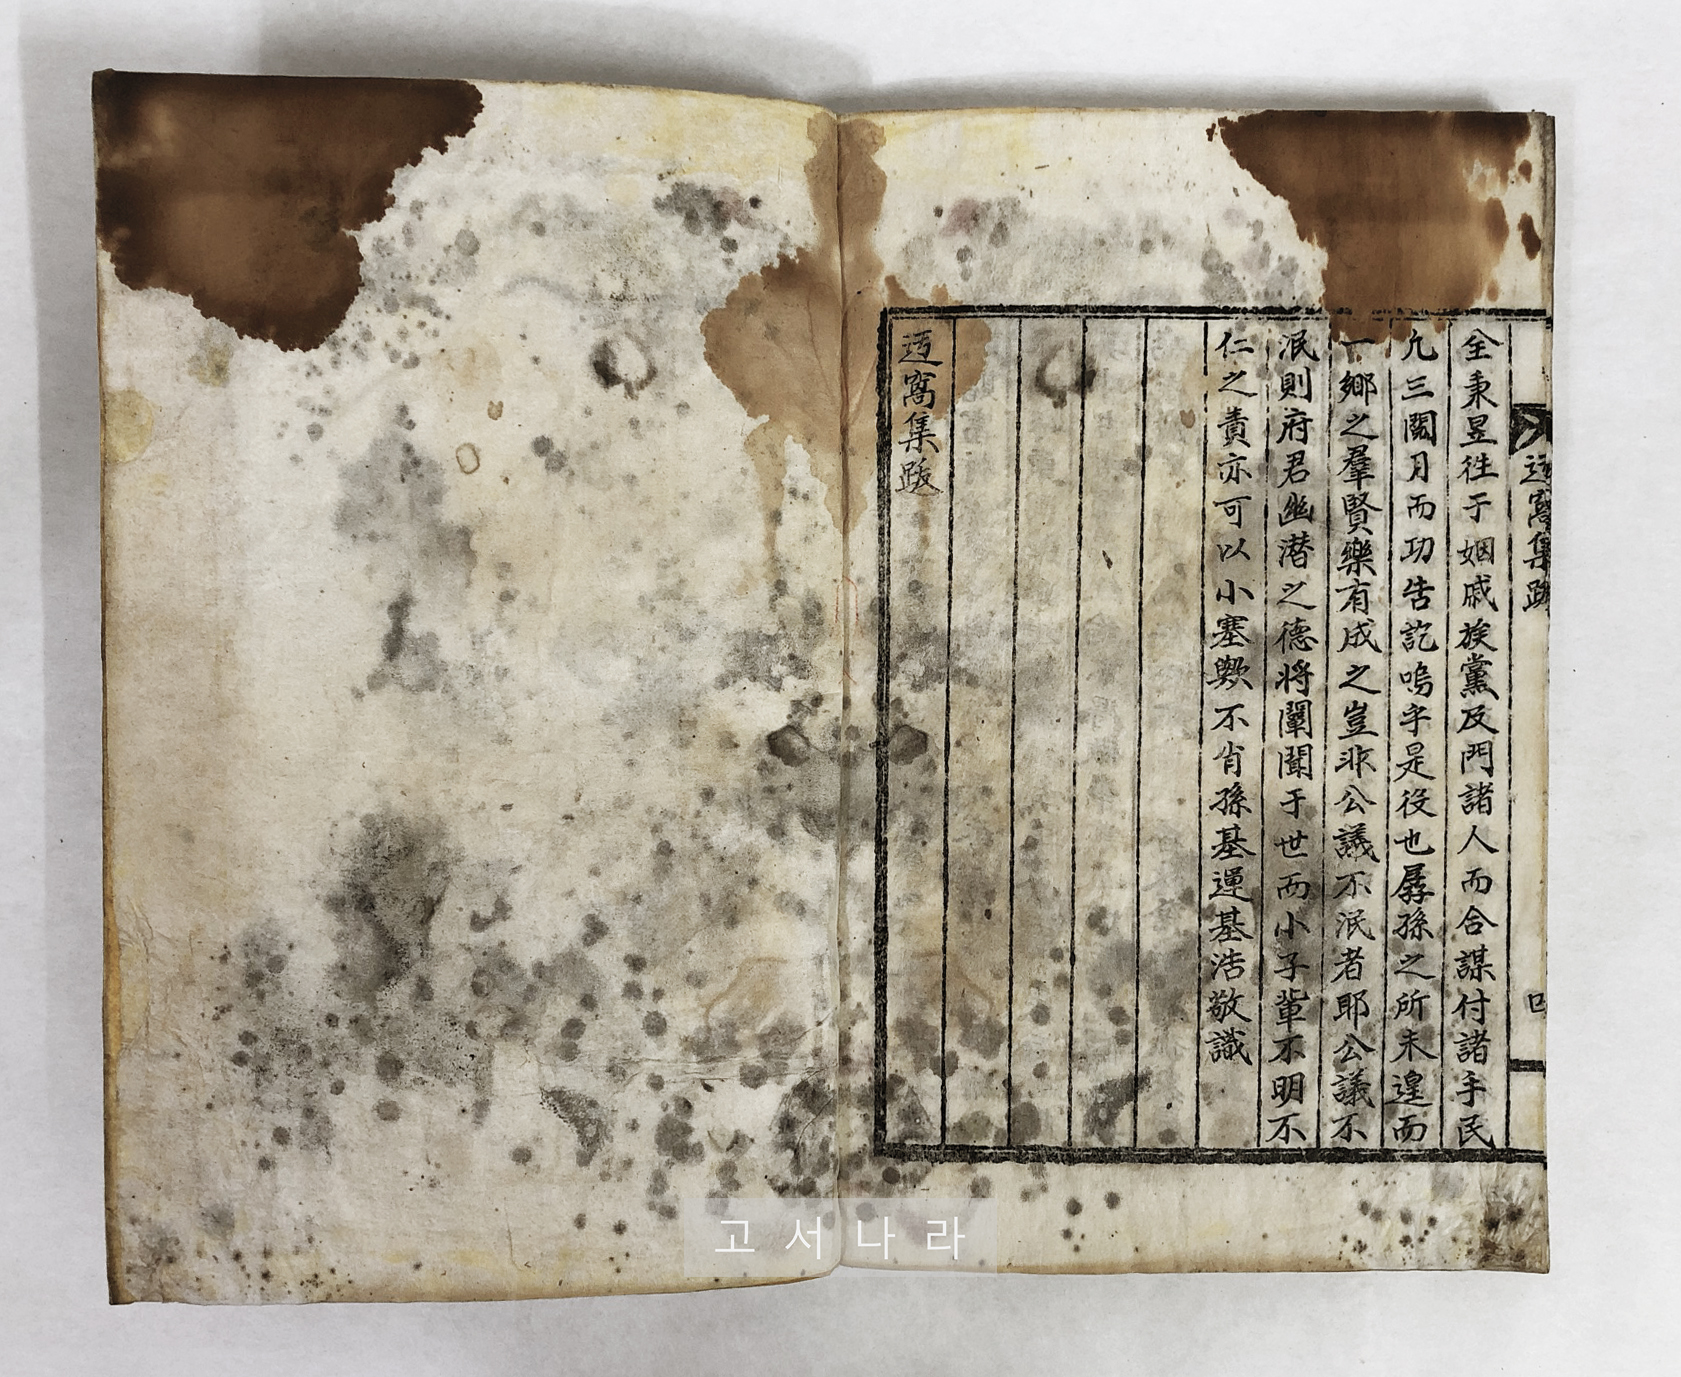 迃窩集跋
四
全秉昱徃于姻戚族黨及門諸人而合謀付諸手民
凡三閱月而功告訖嗚乎是役也孱孫之所未遑而
一鄕之羣賢樂有成之豈非公議不泯者耶公議不
泯則府君幽潜之德将闡聞于世而小子輩不明不
仁之責亦可以小塞歟不肖孫基運基浩敬識
迃窩集跋
고서나라